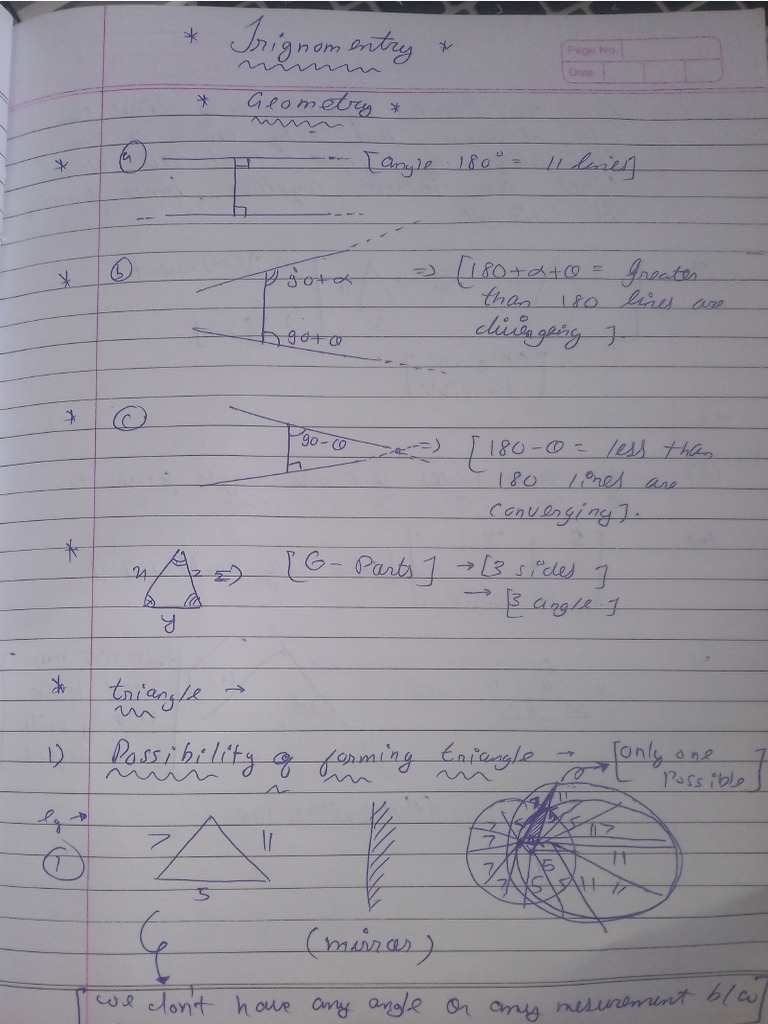 * Trignomentry *
Page No.
Date
* Geometry *
* (a) [angle 180° = 11 lines]
* (b) 90+α => [180+α+θ = Greater
than 180 lines are
90+θ divergeing].
* (c) 90-θ => [180-θ = less than
180 lines are
converging].
* x z => [6-Parts] → [3 sides]
y → [3 angle.]
* triangle →
1) Possibility of forming triangle → [only one
Possible]
eg →
(1) 7 11
5
7 7 7 7 5 5 5 5 5 11 11 11 11
(mirror)
[we don't have any angle or any mesurement b/w]